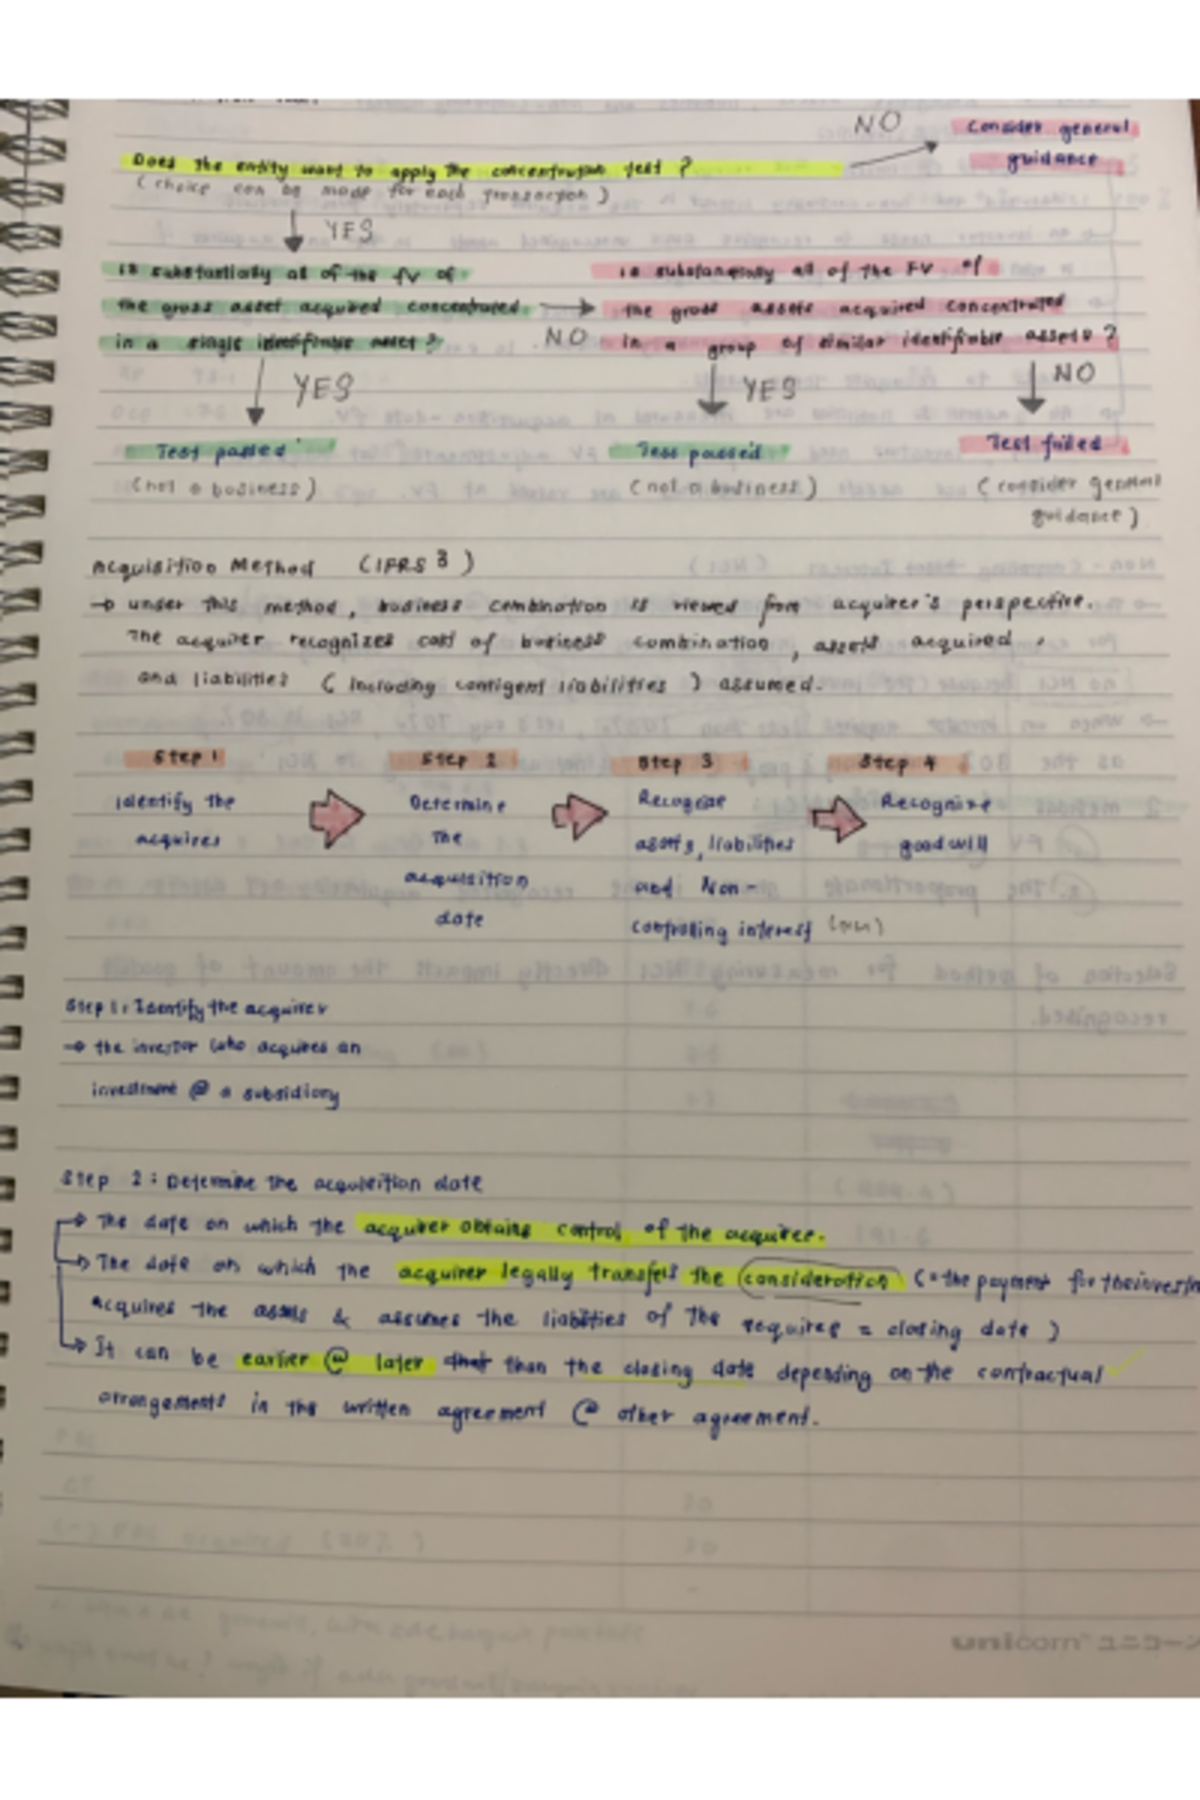 NO
Consider general
guidance
Does the entity want to apply the concentration test ?
( choice can be made for each transaction )
YES
is substantially all of the fv of
the gross asset acquired concentrated
in a single identifiable asset ?
NO
is substantially all of the FV of
the gross assets acquired concentrated
in a group of similar identifiable assets ?
YES
YES
NO
Test passed
(not a business)
Test passed
(not a business)
Test failed
(consider general
guidance)
Acquisition Method (IFRS 3)
→ under this method, business combination is viewed from acquirer's perspective.
The acquirer recognizes cost of business combination, assets acquired,
and liabilities (including contigent liabilities) assumed.
Step 1
Step 2
Step 3
Step 4
Identify the
acquirer
Determine
the
acquisition
date
Recognise
assets, liabilities
and Non-
controlling interest (NCI)
Recognize
goodwill
Step 1: Identify the acquirer
→ the investor who acquires an
investment @ a subsidiary
Step 2 : Determine the acquisition date
→ The date on which the acquirer obtains control of the acquiree.
→ The date on which the acquirer legally transfers the consideration (= the payment for the
acquires the assets & assumes the liabilities of the acquiree = closing date )
→ It can be earlier @ later than the closing date depending on the contractual
arrangements in the written agreement @ other agreement.
unicorn ユニコーン